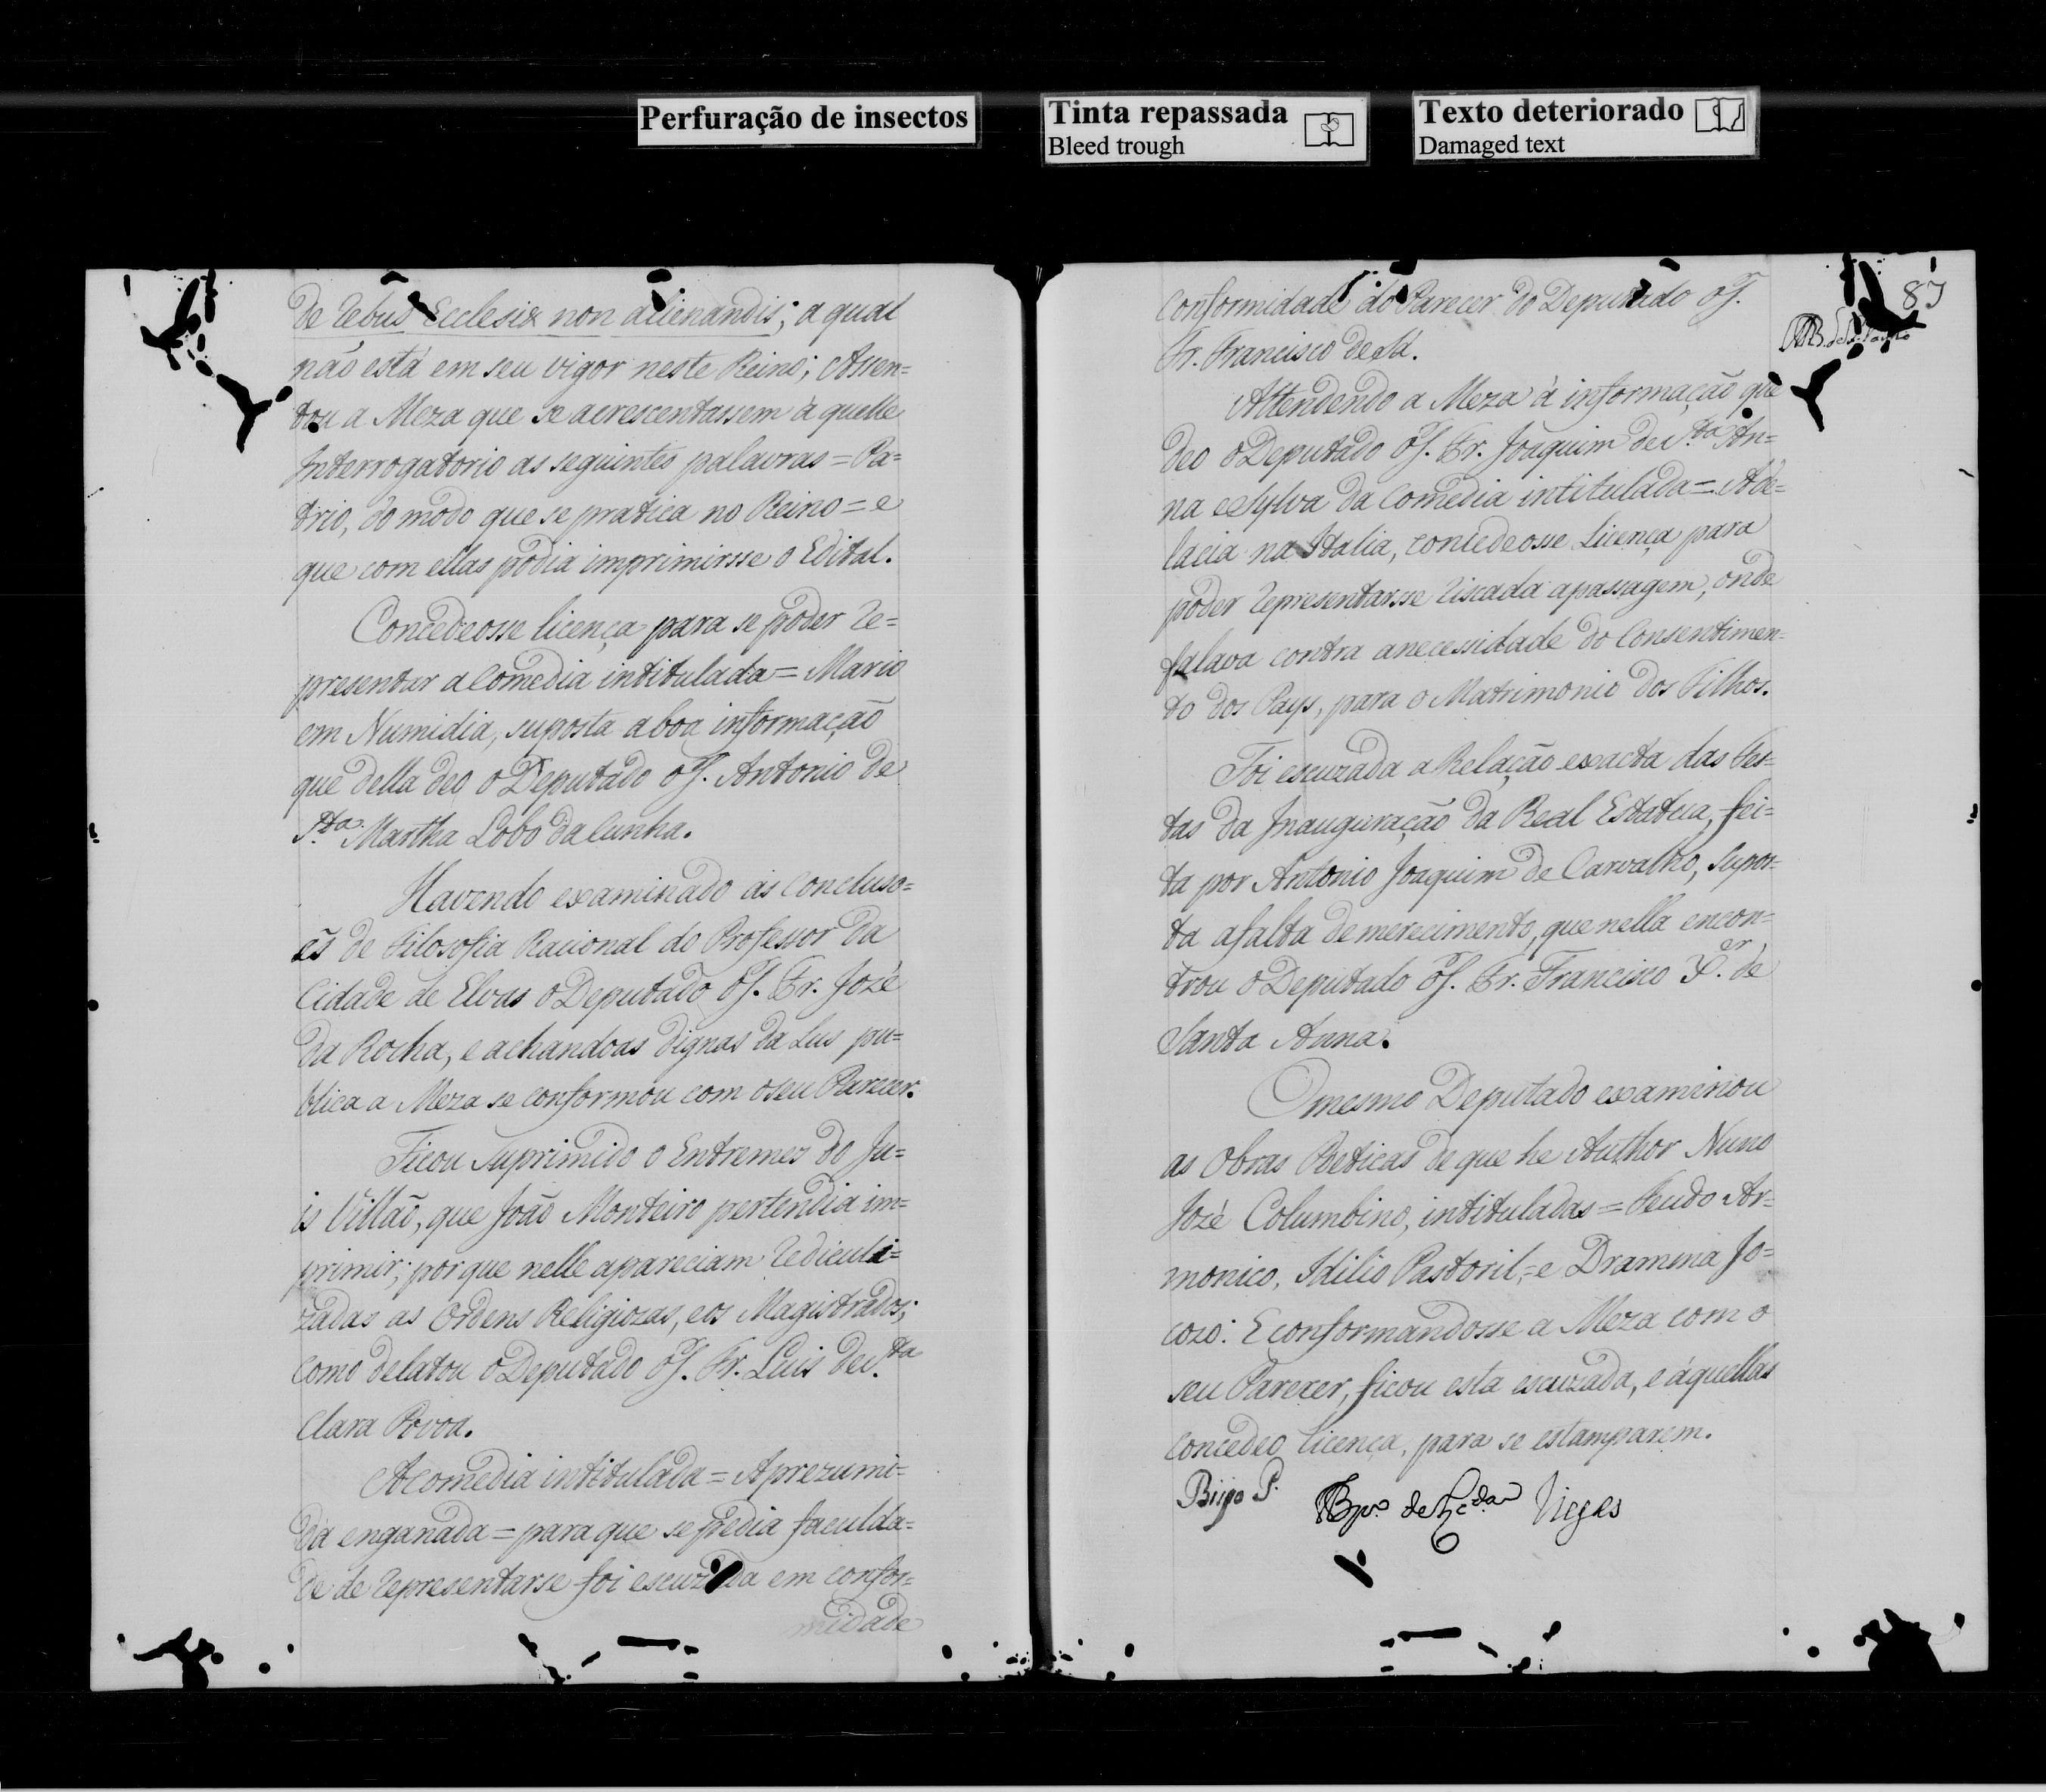 Perfuração de insectos
Tinta repassada
Bleed trough
Texto deteriorado
Damaged text
de rebus Ecclesiæ non alienandis; a qual
não está em seu vigor neste Reino; Assen=
tou a Meza que se acrescentassem á quelle
Interrogatorio as seguintes palavras = Pa=
trio, do modo que se pratica no Reino = e
que com ellas podia imprimirsse o Edital.
Concedeosse licença para se poder re=
presentar a Comedia intitulada = Mario
em Numidia, suposta a boa informação
que della deo o Deputado oS. Antonio de
S.ta Martha Lobo da Cunha.
Havendo examinado as Concluso=
es de Filosofia Racional do Professor da
Cidade de Elvas o Deputado oS. Fr. Jozé
da Rocha, e achandoas dignas da Lus pu=
blica a Meza se conformou com o seu Parecer.
Ficou suprimido o Entremes do Ju=
is Villaõ, que Joaõ Monteiro pertendia im=
primir; porque nelle apareciam rediculi=
zadas as Ordens Religiozas, e os Magistrados;
como delatou o Deputado oS. Fr. Luis de S.ta
Clara Povoa.
A Comedia intitulada = A prezumi=
da enganada = para que se pedia faculda=
de de representarse foi escuzada em confor=
midade
conformidade do Parecer do Deputado oS.
Fr. Francisco de Sá.
87
Attendendo a Meza á informação que
deo o Deputado oS. Fr. Joaquim de S.ta An=
na e Sylva da Comedia intitulada = Ade=
lacia na Italia, concedeosse Licença para
poder representarsse riscada a passagem, onde
falava contra a necessidade do Consentimen=
to dos Pays, para o Matrimonio dos Filhos.
Foi escuzada a Relação exacta das Fes=
tas da Inauguração da Real Estatua, fei=
ta por Antonio Joaquim de Carvalho, supos=
ta a falta de merecimento, que nella encon=
trou o Deputado oS. Fr. Francisco X.er de
Santa Anna.
O mesmo Deputado examinou
as Obras Poeticas de que he Author Nuno
Jozé Columbino, intituladas = Feudo Ar=
monico, Idilio Pastoril, = e Dramma Jo=
cozo: E conformandosse a Meza com o
seu Parecer, ficou esta escuzada, e áquellas
concedeo licença, para se estamparem.
Bispo P.
Viegas